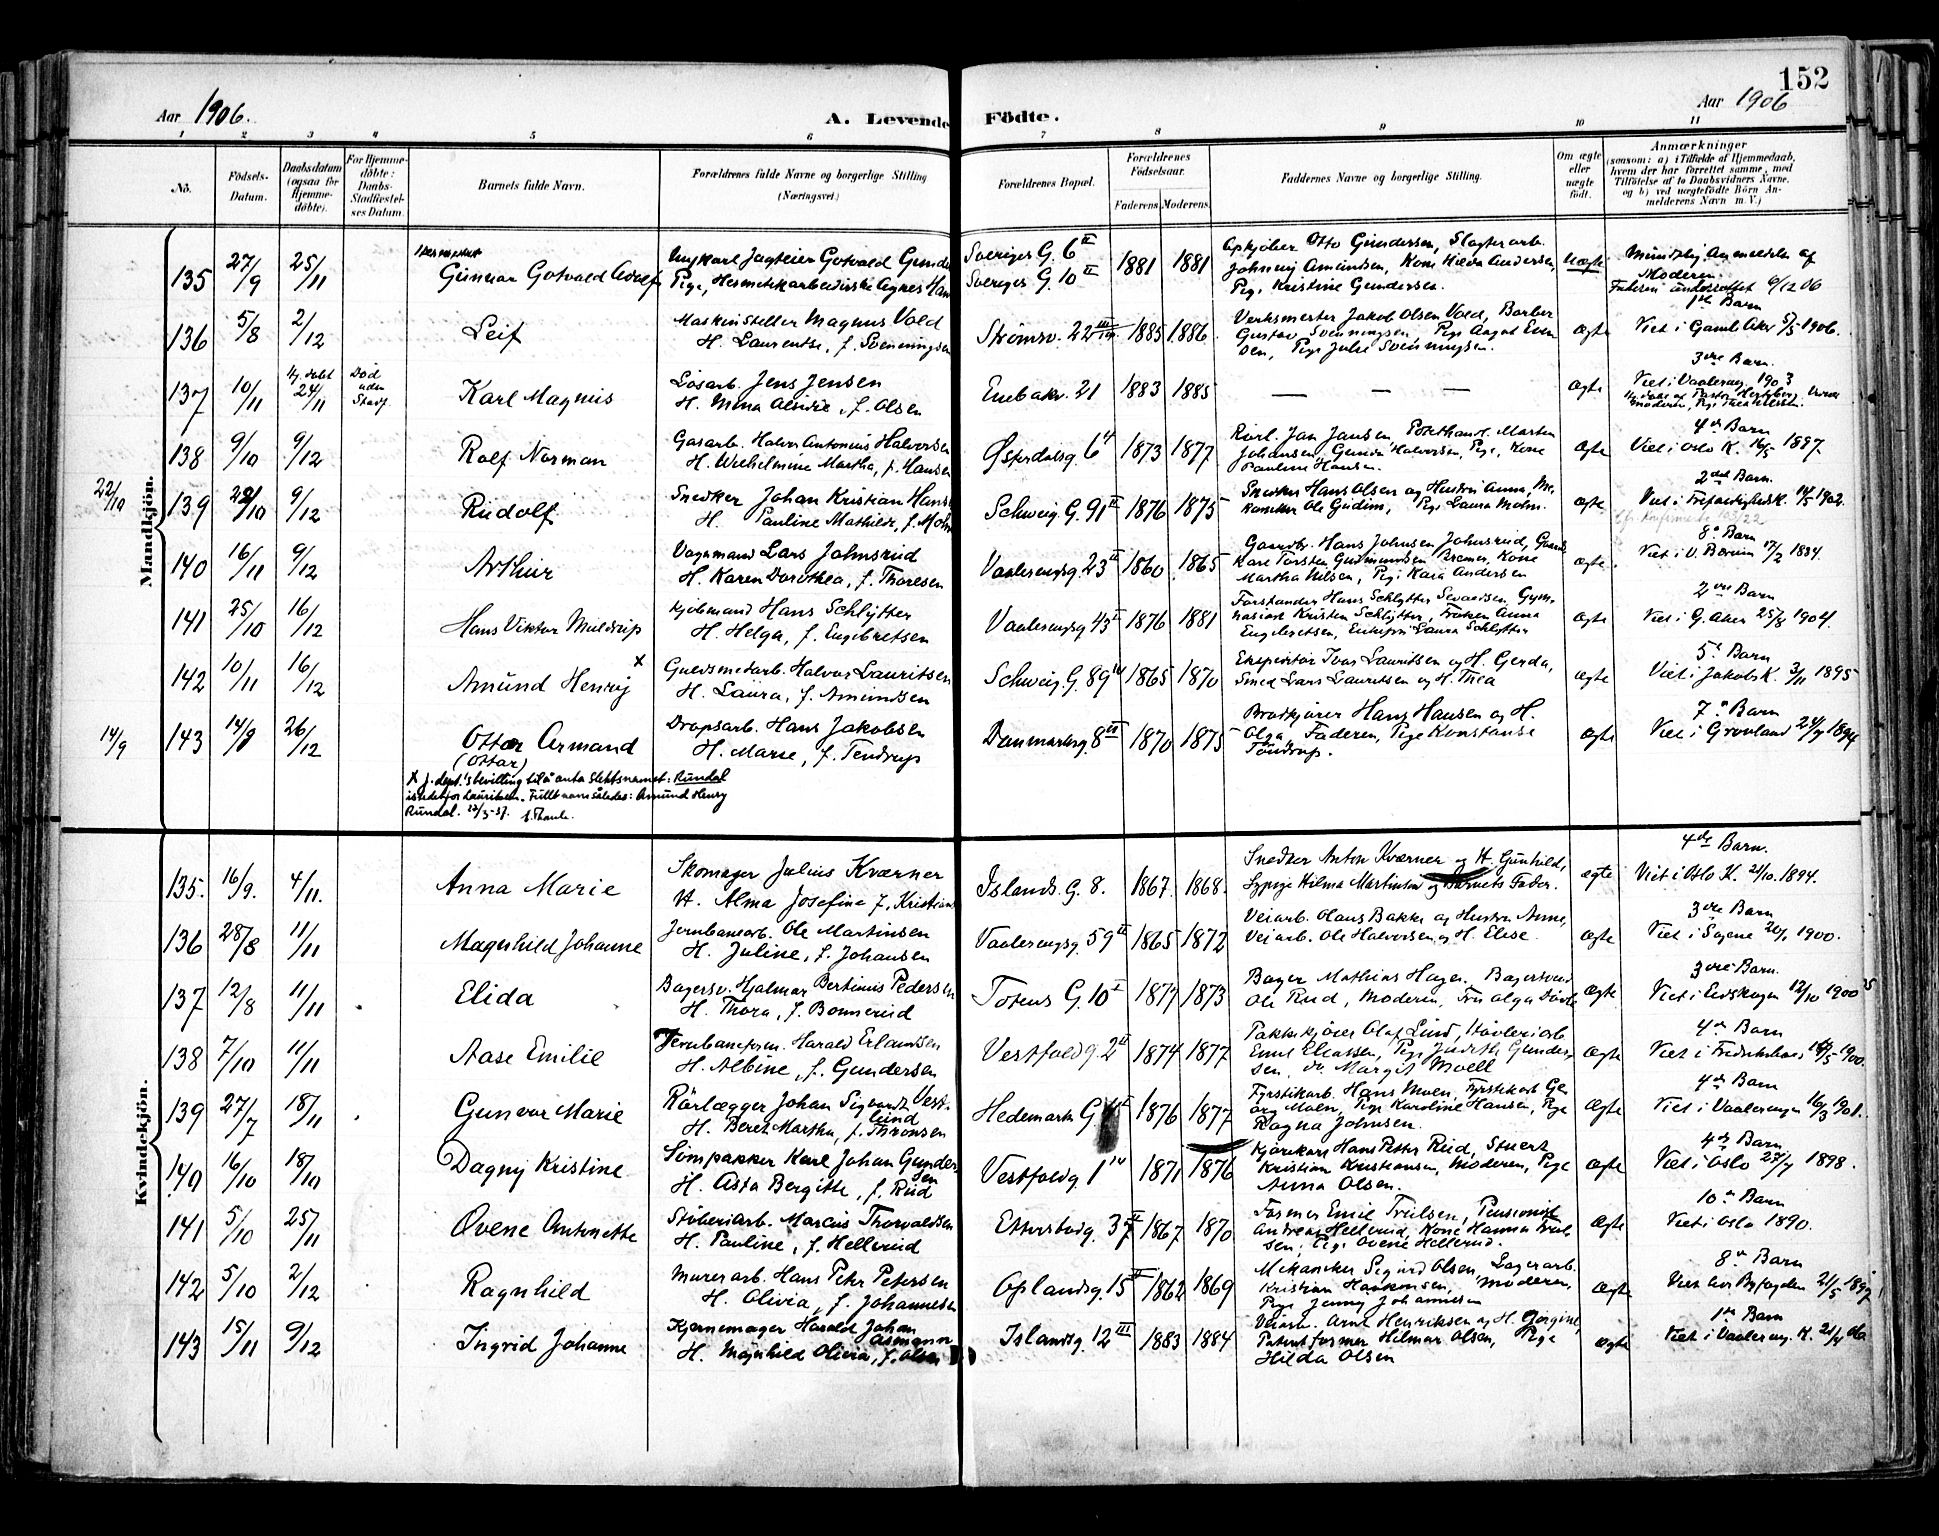 152
Aar 1906.
A. Levende Födte.
Aar 1906
1 2 3 4 5 6 7 8 9 10 11
No.
Födsels-Datum.
Daabsdatum (ogsaa for Hjemme-döbte).
For Hjemme-döbte: Daabs-Stadfæstel-ses Datum.
Barnets fulde Navn.
Forældrenes fulde Navne og borgerlige Stilling
(Næringsvei.)
Forældrenes Bopæl.
Forældrenes Födselsaar.
Faderens. Moderens.
Faddernes Navne og borgerlige Stilling.
Om ægte eller uægte födt.
Anmærkninger
(saasom: a) i Tilfælde af Hjemmedaab, hvem der har forrettet samme, med Tilföielse af to Daabsvidners Navne, og b) ved uægtefödte Börn An-melderens Navn m. V.)
Mandkjön.
135 27/9 25/11
Gunnar Gotvald Adolf
Ungkarl Jagteier Gotvald
Pige, Hermetikarbeiderske Agnes
Sveriges G. 6 II
Sveriges G. 10 II
1881 1881
Opkjöber Otto Gundersen, Slagterarb.
Johnny Amundsen, Kone Hilda Andersen,
Pige Kristine Gundersen.
uægte
Mundtlig Anmeldelse af
Moderen.
Faderen underrettet 6/12 06
136 5/8 2/12
Leif
Maskinsteller Magnus Vold
H. Laurentse, f. Svenningsen
Strömsv. 22
1885 1886
Verksmester Jakob Olsen Vold, Barber
Gustav Svenningsen, Pige Aagot Even
sen, Pige Julie Svenningsen.
ægte
1ste Barn
Viet i Gaml. Aker 5/5 1906.
137 10/11 24/11
Död
uden
Stadf.
Karl Magnus
Lösarb. Jens Jensen
H. Mina Alvide, f. Olsen
Enebakv. 21
1883 1885
— — —
ægte
3die Barn.
Viet i Vaalereng. 1903
138 9/10 9/12
Rolf Norman
Gasarb. Halvor Antonius Halvorsen
H. Wilhelmine Martha, f. Hansen
Österdalsg. 6 4
1873 1877
Rörl. Jan Jansen, Posthandl. Morten
Johansen, Gunda Halvorsen, Pige, Kone
Pauline Hansen.
ægte
4de Barn
Viet i Oslo K. 16/5 1897.
22/10
139 9/12
Rudolf
Snedker Johan Kristian
H. Pauline Mathilde, f.
Schweig. G. 91 II
1876 1875
Snedker Hans Olsen og Hustru Anna, Me
kaniker Ole Gudim, Pige Laura Molm.
ægte
2det Barn.
Viet i Trefoldighedsk. 14/5 1902.
140 16/11 9/12
Arthur
Vognmand Lars Johnsrud
H. Karen Dorothea, f. Thoresen
Vaalerengsg. 23 II
1860 1865
Gaardbr. Hans Johnsen Johnsrud, Gaard
Kare Torsten Gudmundsen Bremer, Kone
Martha Nilsen, Pige Kaia Andersen
ægte
8de Barn
Viet i V. Bærum 17/2 1884.
141 25/10 16/12
Hans Viktor Muldrup
Kjöbmand Hans Schlytter
H. Helga, f. Engebretsen
Vaalerengsg 43 I
1876 1881
Forstander Hans Schlytter Sevaldsen, Gym-
nasiast Kristen Schlytter, Fröken Anna
Engebretsen, Enkefru Laura Schlytter
ægte
2det Barn
Viet i G. Aker 25/8 1904.
142 10/11 16/12
Amund Henry x
Guldsmedarb. Halvor Lauritsen
H. Laura, f. Amundsen
Schweig. G. 89 IV
1865 1870
Ekspeditör Ivar Lauritsen og H. Gerda,
Smed Lars Lauritsen og H. Thea
ægte
5te Barn
Viet i Jakobs K. 3/11 1895
14/9
143 14/9 26/12
Ottar Armand
(Ottar)
Dropsarb. Hans Jakobsen
H. Marie, f. Tendrup
Danmarksg. 8 III
1870 1875
Brödkjörer Hans Hansen og H.
Olga, Faderen, Pige Konstanse
Töndrup.
ægte
7de Barn
Viet i Grönland 1894
x J. dept.'s bevilling til å anta slektsnavnet: Rundal
istedetfor Lauritsen. Fullt navn således: Amund Henry
Rundal.
Kvindekjön.
135. 16/9. 4/11.
Anna Marie
Skomager Julius Kværner
H. Alma Josefine f. Kristian
Islands. G. 8.
1867. 1868.
Snedker Anton Kværner og H. Gunhild,
Sypige Hilma Martinsen og Barnets Fader.
ægte
4de Barn.
Viet i Oslo K. 21/10. 1894.
136 28/8 11/11
Magnhild Johanne
Jernbanearb. Ole Martinsen
H. Juline, f. Johansen
Vaalerengsg. 59 II
1865 1872
Veiarb. Hans Bakke og Hustru Anne,
Veiarb. Ole Halvorsen og H. Elise.
ægte
3die Barn
Viet i Sagene 20/1 1900.
137 12/8 11/11
Elida
Bagersv. Hjalmar Bertinius Pedersen
H. Thora, f. Bonnerud
Totens G. 10 I
1877 1873
Bager Mathias Hagen, Bagersvend
Ole Rud, Moderen, Fru Olga
ægte
3die Barn.
Viet i Eidskogen 12/10 1900
138 7/10 11/11
Aase Emilie
Jernbaneform. Harald Erlandsen
H. Albine, f. Gundersen
Vestfoldg. 2 II
1874 1877
Pakkekjörer Olaf Lund, Hövleriarb.
Emil Eliassen, Pige Judith Gunder-
sen, do Margit Moell
ægte
4de Barn
Viet i Fredrikshald 1900.
139 27/7 18/11
Gunvor Marie
Rörlægger Johan Sigvardt Vest-
lund
H. Beret Martha, f. Thronsen
Hedemarks G.
1876 1877
Fyrstikarb. Hans Moen, Fyrstikarb Ge
org Moen, Pige Karoline Hansen, Pige
Ragna Johnsen.
ægte
4de Barn
Viet i Vaalerengen 16/3 1901.
140 16/10 18/10
Dagny Kristine
Sömpakker Karl Johan Gunder
sen
H. Asta Bergitte, f. Rud
Vestfoldg 1 IV
1871 1876
Kjörekarl Hans Petter Rud, Stuert
Kristian Kristiansen, Moderen, Pige
Anna Olsen.
ægte
4de Barn
Viet i Oslo 27/7 1898.
141 5/10 25/11
Ovene Antonette
Stöberiarb. Marcus Thorvaldsen
H. Pauline, f. Hellerud
Etterstadg. 37 II
1867 1870
Former Emil Trulsen, Pensionist
Andreas Hellerud, Kone Hanna Trul
sen, Pige Ovene Hellerud.
ægte
10de Barn
Viet i Oslo 1890.
142 5/10 2/12
Ragnhild
Murerarb. Hans Petr Petersen
H. Olivia, f. Johannesen
Oplandsg. 15 II
1862 1869
Mekaniker Sigurd Olsen, Lagerarb.
Kristian Haakonsen, Moderen,
Pige Jenny Johannesen
ægte
8de Barn
Viet hos Byfogden 21/5
143 15/11 9/12
Ingrid Johanne
Kjernemager Harald Johan
Asmann
H. Magnhild Olivia, f. Olsen
Islandsg. 12 III
1883 1884
Arnt Henriksen og H. Gorgine,
Former Hilmar Olsen, Pige
Hilda Olsen
ægte
1ste Barn
Viet i Vaalereng. K. 21/4 06